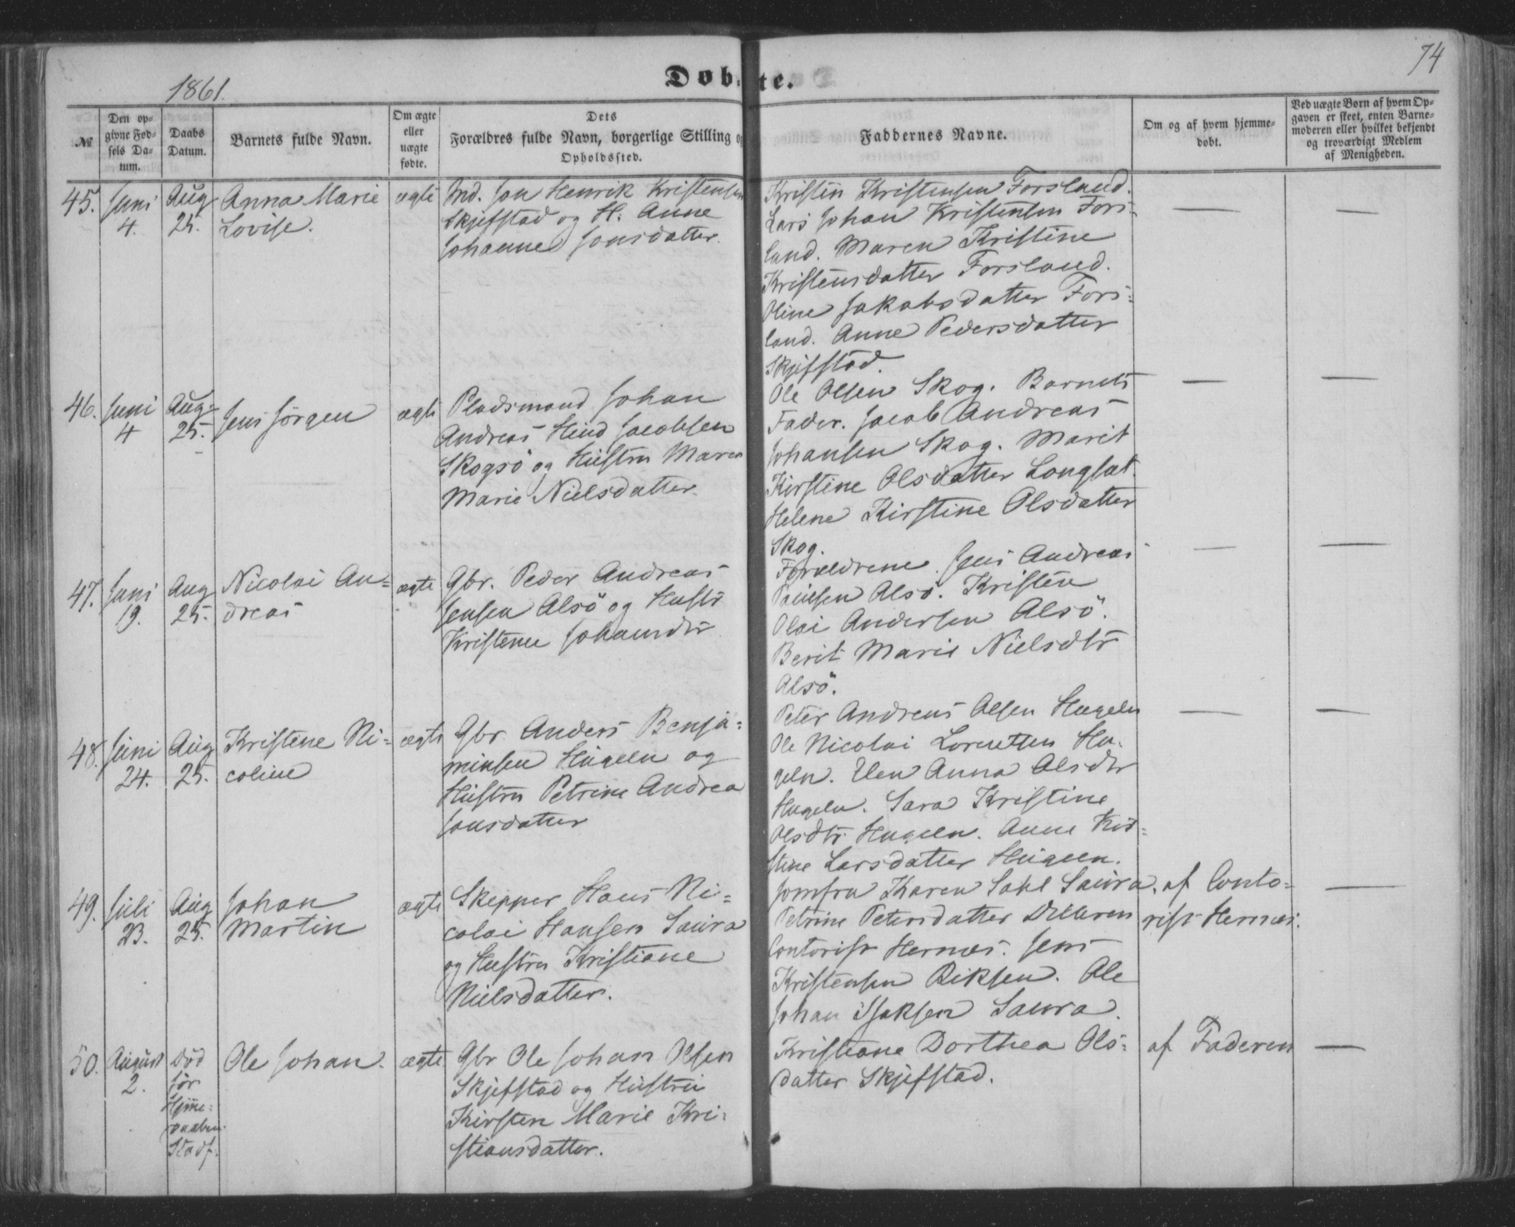 1861.
Døbte.
74
№
Den opgivne Fødsels Datum.
Daabs Datum.
Barnets fulde Navn.
Om ægte eller uægte fødte.
Dets Forældres fulde Navn, borgerlige Stilling og Opholdssted.
Faddernes Navne.
Om og af hvem hjemmedøbt.
Ved uægte Børn af hvem Opgaven er skeet, enten Barnemoderen eller hvilket bekjendt og troværdigt Medlem af Menigheden.
45. Juni 4. Aug 25. Anna Marie Lovise. ægte
Md. Jon Henrik Kristensen
Skjefstad og H. Anne
Johanne Jonsdatter.
Kristen Kristensen Forsland.
Lars Johan Kristensen Fors-
land. Maren Kristine
Kristensdatter Forsland.
Oline Jakobsdatter Fors-
land. Anne Pedersdatter
Skjefstad.
46. Juni 4 Aug 25. Jens Jørgen ægte
Pladsmand Johan
Andreas Hind Jacobsen
Skogsø og Hustru Maren
Marie Nielsdatter.
Ole Olsen Skog. Barnets
Fader. Jacob Andreas
Johansen Skog. Marit
Kirstine Olsdatter Langset
Helene Kirstine Olsdatter
Skog.
47. Juni 19. Aug 25. Nicolai An=
dreas ægte
Gbr. Peder Andreas
Jensen Alsö og Hustr
Kristene Johansdtr
Forældrene. Jens Andreas
Paulsen Alsö. Kristen
Olai Andersen Alsö.
Berit Marie Nielsdtr
Alsö.
48. Juni 24. Aug 25. Kristene Ni-
coline ægte
Gbr. Anders Benja=
minsen Hugeln og
Hustru Petrine Andrea
Jonsdatter
Peter Andreas Olsen Hugeln
Ole Nicolai Lorentsen Hu-
geln. Elen Anna Olsdtr
Hugeln. Sara Kristine
Olsdtr Hugeln. Anne Kir=
stine Larsdatter Hugeln.
49. Juli 23. Aug 25. Johan
Martin ægte
Skipper Hans Ni=
colai Hansen Saura
og Hustru Kristiane
Nielsdatter.
Jomfru Karen Dahl Saura.
Petrine Petersdatter Dilleren
Contorist Hernæs. Jens
Kristensen Riksen. Ole
Johan Isaksen Saura.
af Conto=
rist Hernæs.
50. August 2. Død
før
Hjme=
daaben
Stadf. Ole Johan. ægte
Gbr Ole Johan Olsen
Skjefstad og Hustru
Kirsten Marie Kri-
stiansdatter.
Kristiane Dorthea Ols-
datter Skjefstad.
af Faderen